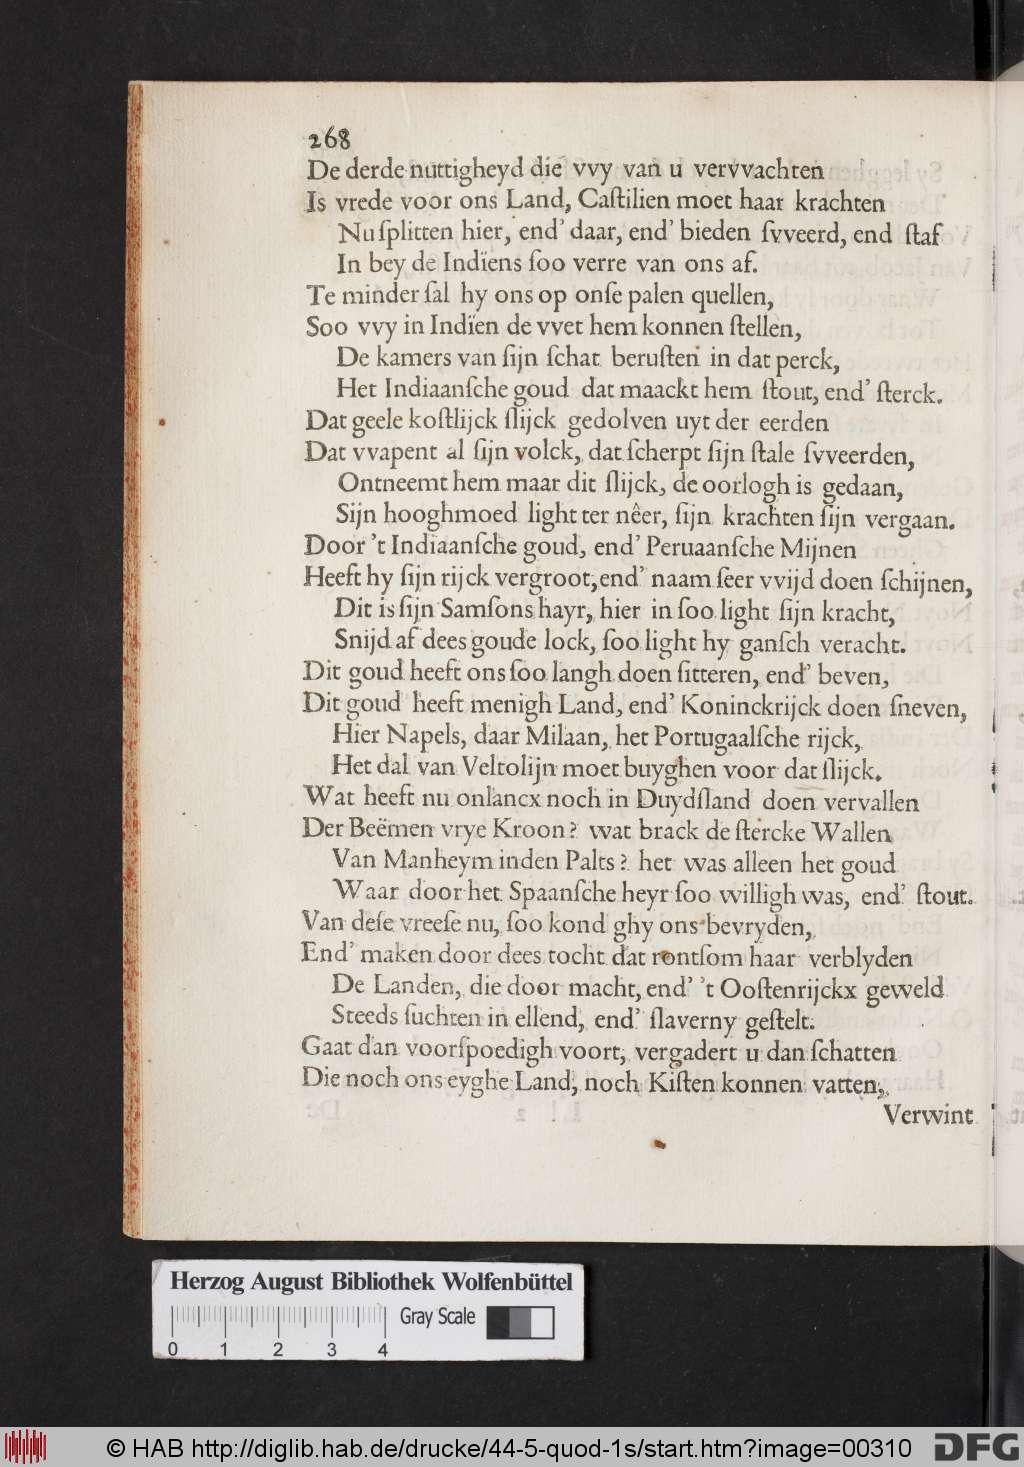 268
De derde nuttigheyd die vvy van u vervvachten
Is vrede voor ons Land, Caſtilien moet haar krachten
Nu ſplitten hier, end' daar, end' bieden ſvveerd, end ſtaf
In bey de Indïens ſoo verre van ons af.
Te minder ſal hy ons op onſe palen quellen,
Soo vvy in Indïen de vvet hem konnen ſtellen,
De kamers van ſijn ſchat beruſten in dat perck,
Het Indiaanſche goud dat maackt hem ſtout, end' ſterck.
Dat geele koſtlijck ſlijck gedolven uyt der eerden
Dat vvapent al ſijn volck, dat ſcherpt ſijn ſtale ſvveerden,
Ontneemt hem maar dit ſlijck, de oorlogh is gedaan,
Sijn hooghmoed light ter nêer, ſijn krachten ſijn vergaan.
Door 't Indiaanſche goud, end' Peruaanſche Mijnen
Heeft hy ſijn rijck vergroot, end' naam ſeer vvijd doen ſchijnen,
Dit is ſijn Samſons hayr, hier in ſoo light ſijn kracht,
Snijd af dees goude lock, ſoo light hy ganſch veracht.
Dit goud heeft ons ſoo langh doen ſitteren, end' beven,
Dit goud heeft menigh Land, end' Koninckrijck doen ſneven,
Hier Napels, daar Milaan, het Portugaalſche rijck,
Het dal van Veltolijn moet buyghen voor dat ſlijck.
Wat heeft nu onlancx noch in Duydſland doen vervallen
Der Beëmen vrye Kroon? wat brack de ſtercke Wallen
Van Manheym inden Palts? het was alleen het goud
Waar door het Spaanſche heyr ſoo willigh was, end' ſtout.
Van deſe vreeſe nu, ſoo kond ghy ons bevryden,
End' maken door dees tocht dat rontſom haar verblyden
De Landen, die door macht, end' 't Ooſtenrijckx geweld
Steeds ſuchten in ellend, end' ſlaverny geſtelt.
Gaat dan voorſpoedigh voort, vergadert u dan ſchatten
Die noch ons eyghe Land, noch Kiſten konnen vatten,
Verwint
Herzog August Bibliothek Wolfenbüttel
Gray Scale
0 1 2 3 4
© HAB http://diglib.hab.de/drucke/44-5-quod-1s/start.htm?image=00310
DFG